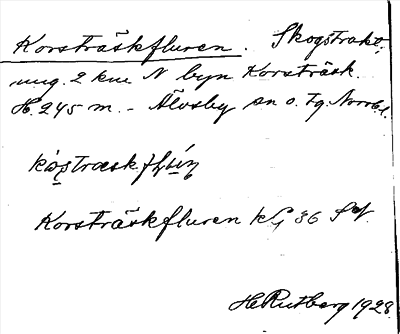 Korsträskfluren. Skogstrakt,
ung. 2 km N byn Korsträsk.
H. 245 m. - Älvsby sn o. tg. Norrb. l.
Korsträskfluren kl, 36
H Rutberg 1928